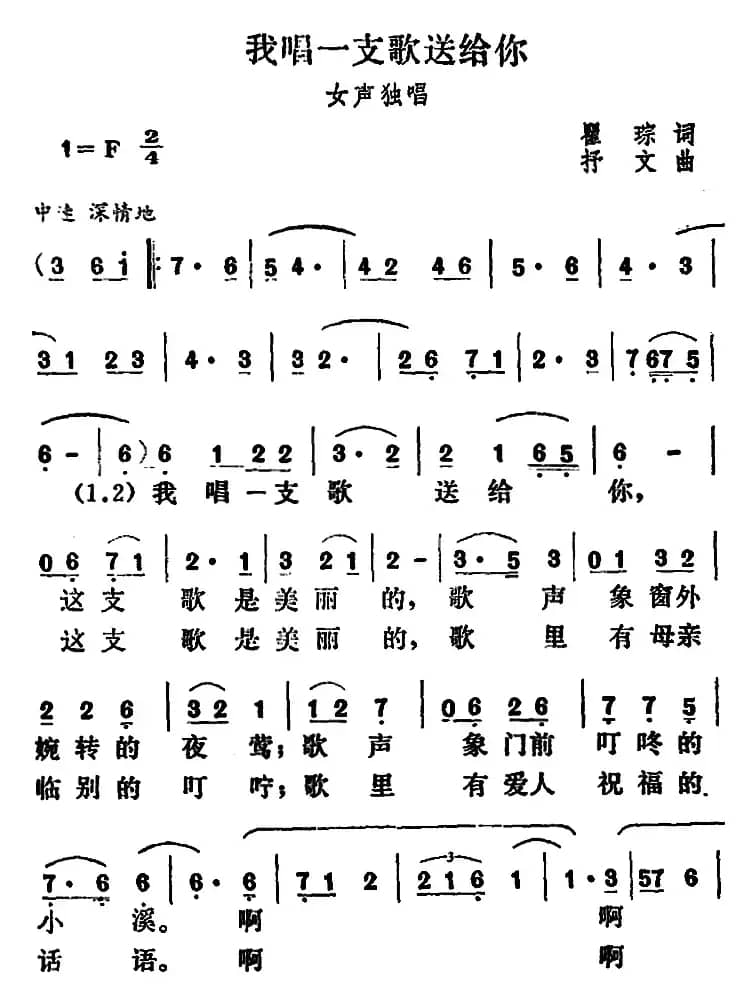 我唱一支歌送给你
女声独唱
1=F 2/4
瞿 琮 词
抒 文 曲
中速 深情地
(3 6 1 ‖: 7· 6 | 5 4· | 4 2 4 6 | 5· 6 | 4· 3 |
3 1 2 3 | 4· 3 | 3 2· | 2 6 7 1 | 2· 3 | 7 6 7 5 |
6 - | 6 ) 6 1 2 2 | 3· 2 | 2 1 6 5 | 6 - |
(1.2)我 唱一支 歌 送给 你,
0 6 7 1 | 2· 1 | 3 2 1 | 2 - | 3· 5 3 | 0 1 3 2 |
这支 歌是美丽 的, 歌 声 象窗外
这支 歌是美丽 的, 歌 里 有母亲
2 2 6 | 3 2 1 | 1 2 7 | 0 6 2 6 | 7 7 5 |
婉转的 夜 莺; 歌 声 象门前 叮咚的
临别的 叮 咛; 歌 里 有爱人 祝福的
7· 6 6 | 6· 6 | 7 1 2 | 3 2 1 6 1 | 1· 3 | 5 7 6 |
小 溪。 啊 啊
话 语。 啊 啊